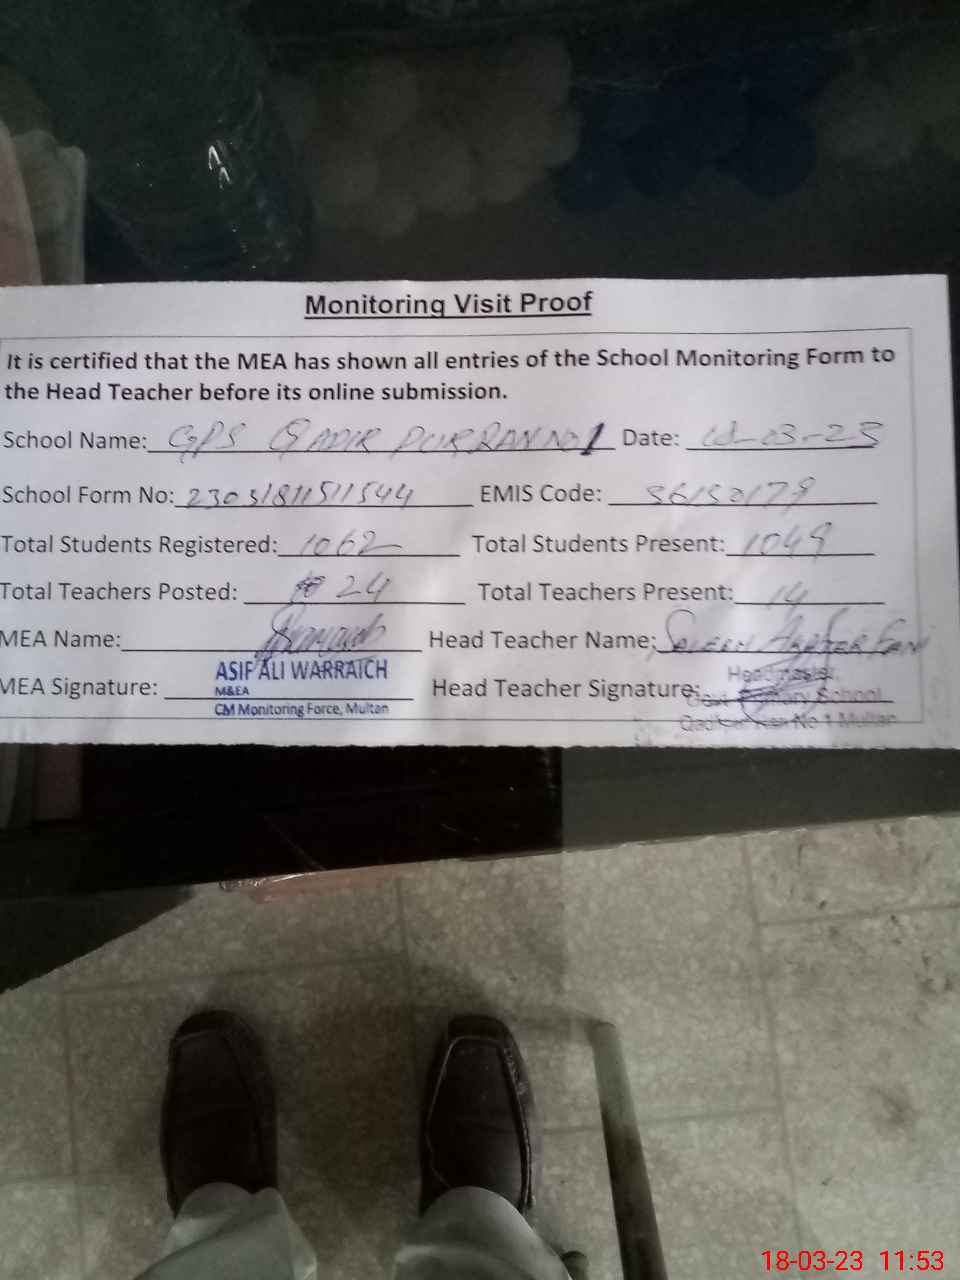 Monitoring Visit Proof
It is certified that the MEA has shown all entries of the School Monitoring Form to
the Head Teacher before its online submission.
School Name: GPS QADIR PUR RAN NO 1 Date: 18-03-23
School Form No: 23031811511544 EMIS Code: 36150179
Total Students Registered: 1062 Total Students Present: 1049
Total Teachers Posted: 24 Total Teachers Present: 14
MEA Name: Head Teacher Name: SALEEM
ASIF ALI WARRAICH
M&EA
CM Monitoring Force, Multan
MEA Signature: Head Teacher Signature:
Headmaster
Govt Primary School
Qadirpur Ran No 1 Multan
18-03-23 11:53